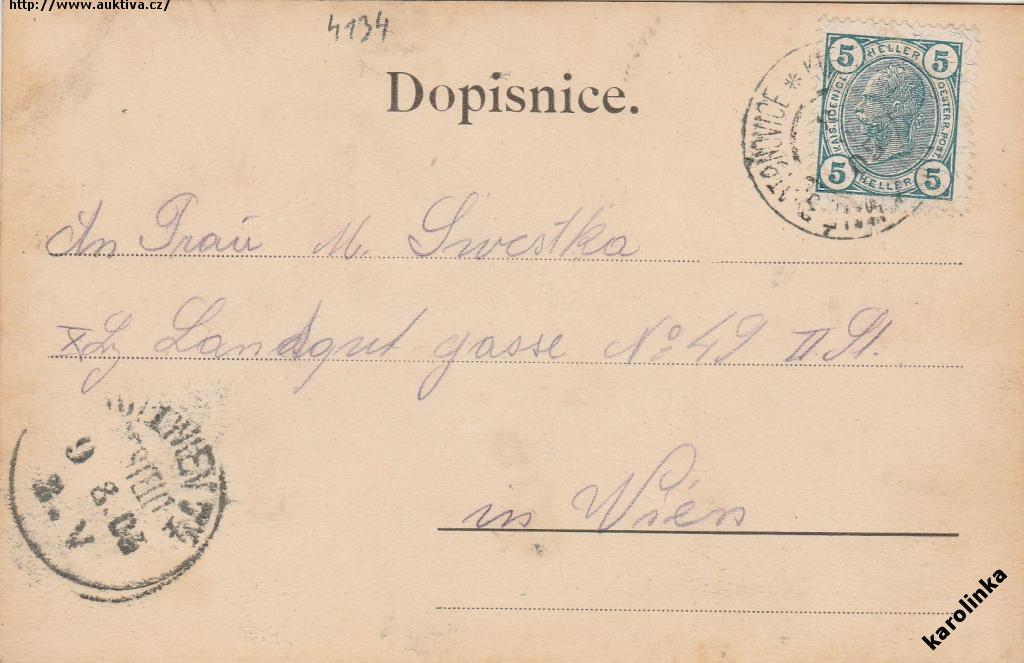 http://www.auktiva.cz/
4134
Dopisnice.
5 HELLER 5
KAIS. KOENIGL. OESTERR. POST
5 HELLER 5
An Frau M. Swestka
Landsgut gasse No 49 II. St.
in Wien
WIEN
9 8.
karolinka